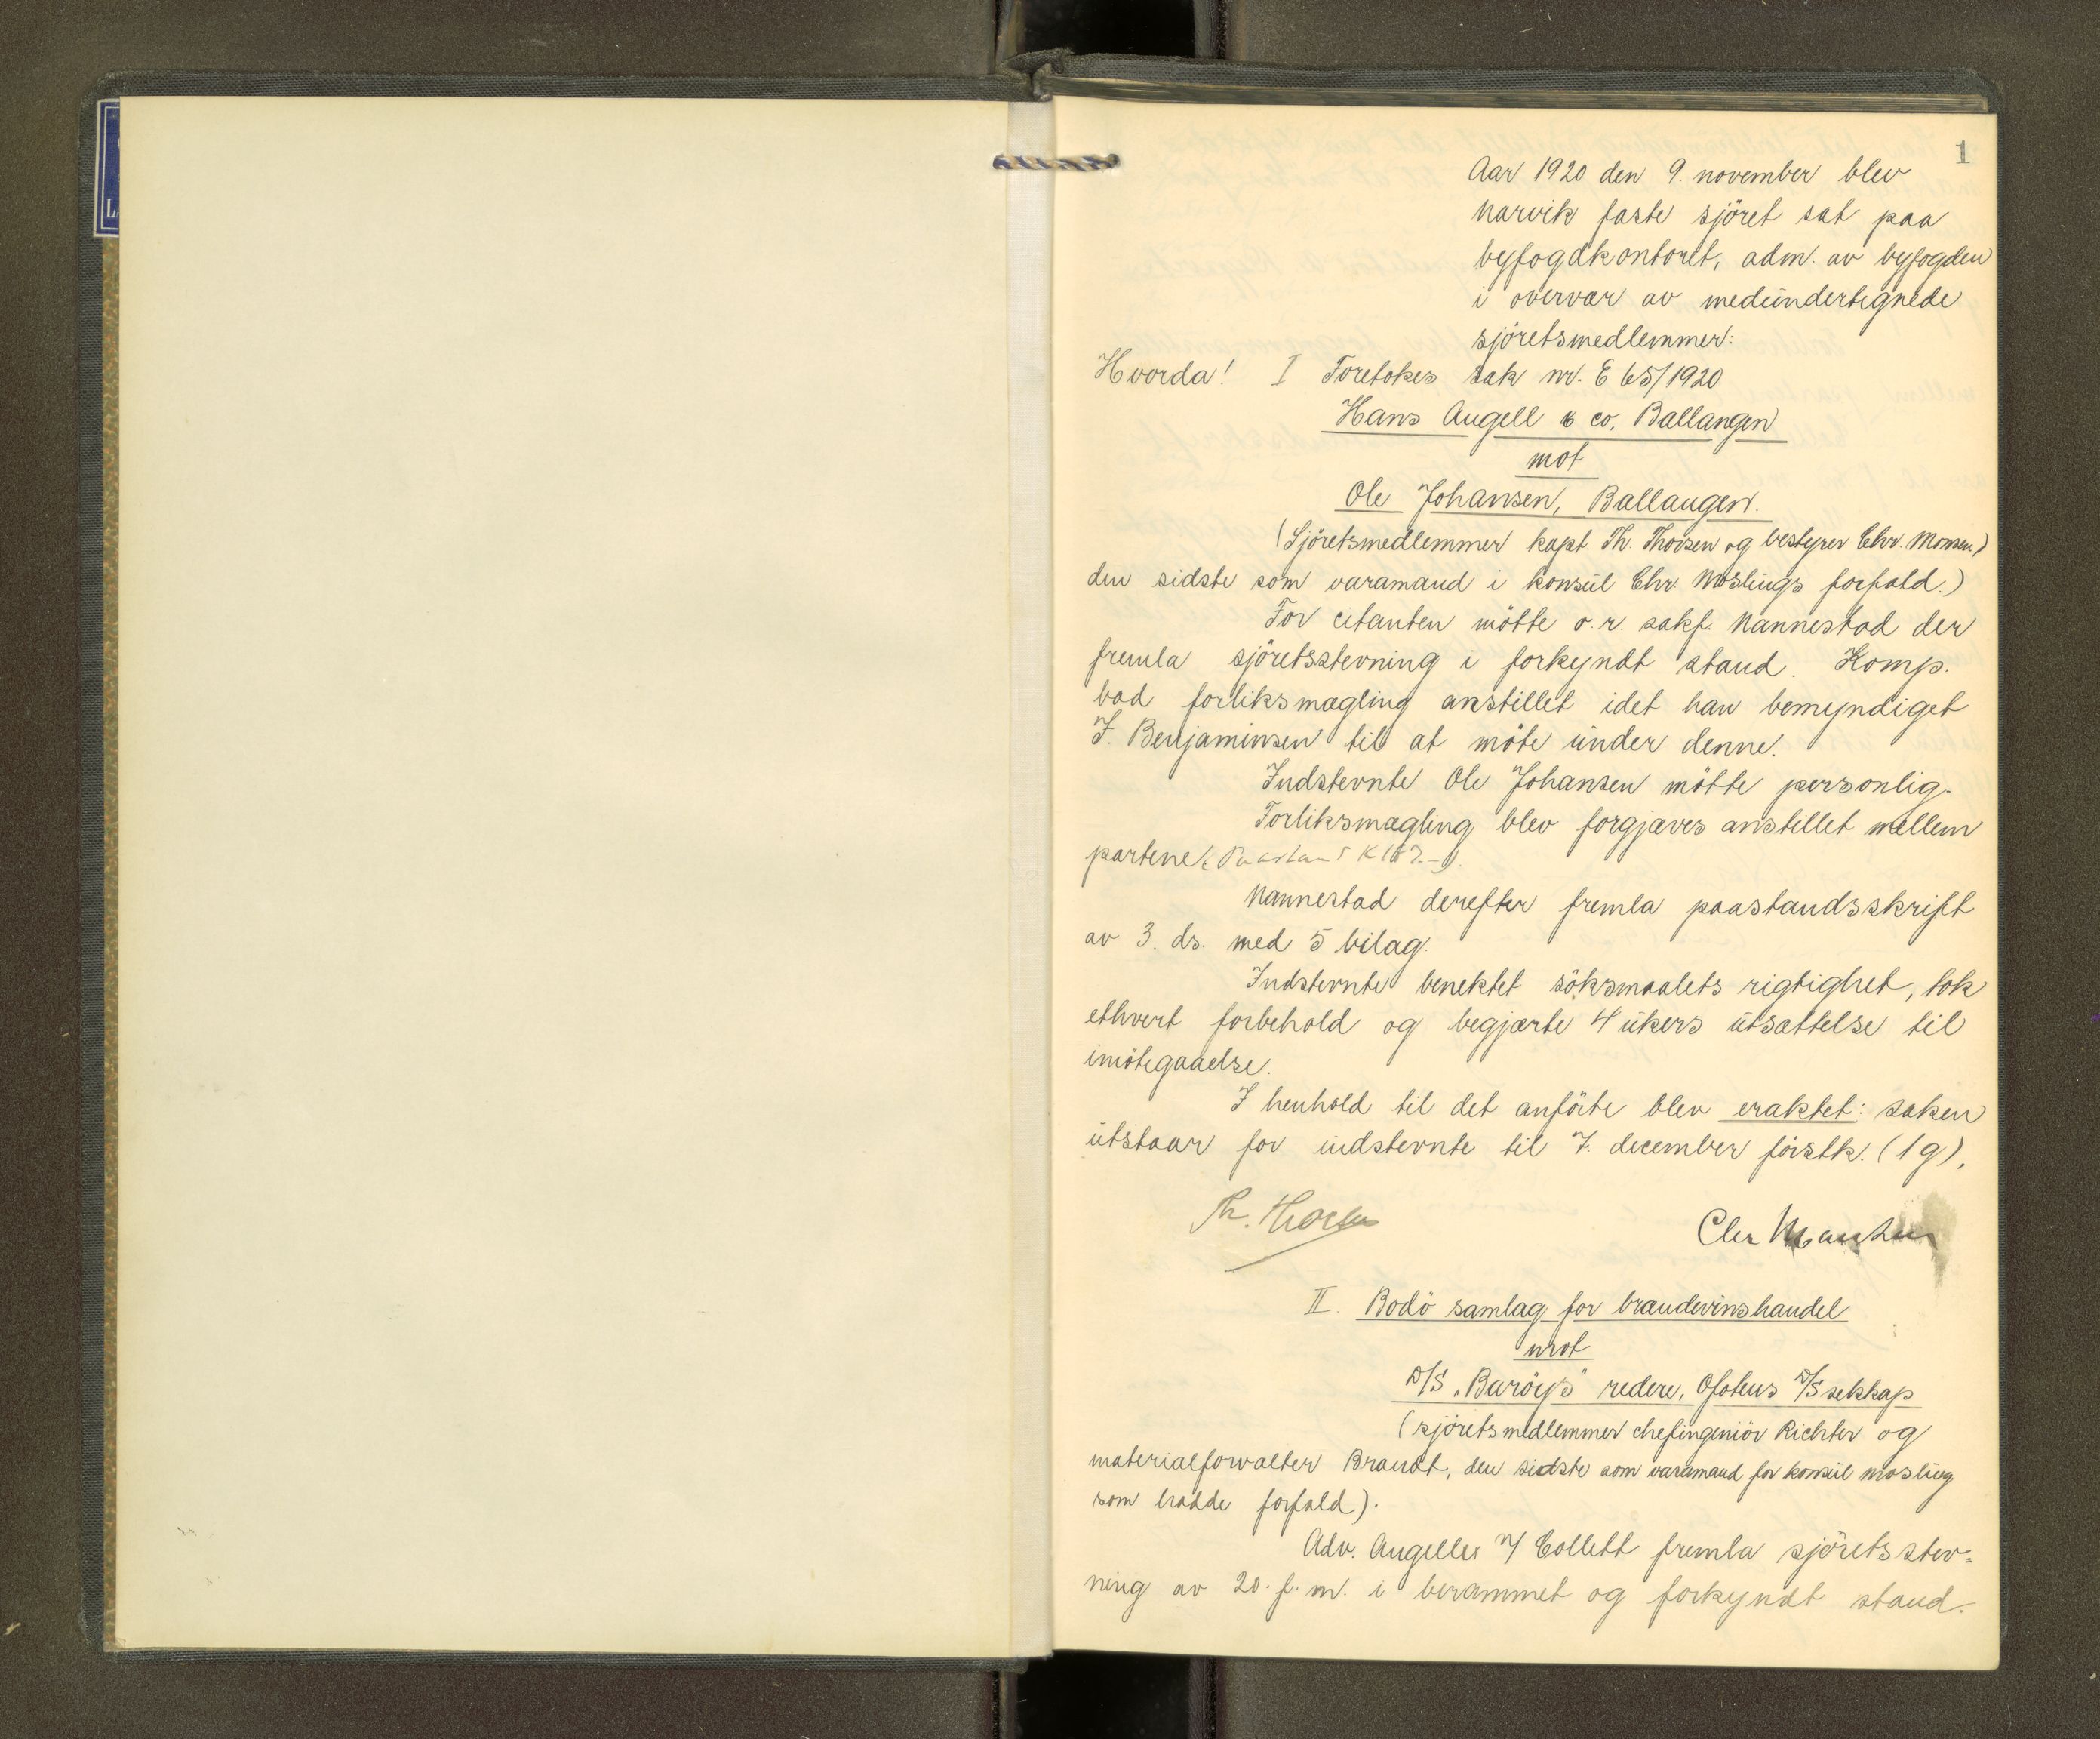 1
Aar 1920 den 9. november blev
Narvik faste sjöret sat paa
byfogdkontoret, adm. av byfogden
i overvær av medundertegnede
sjöretsmedlemmer:
Hvorda! I Foretokes sak nr. E 65/1920
Hans Angell & co. Ballangen
mot
Ole Johansen, Ballangen.
(Sjöretsmedlemmer kapt. Th. Thorsen og bestyrer Chr. Monsen,
den sidste som varamand i konsul Chr. Moslings forfald.)
For citanten mötte o.r. sakf. Nannestad der
fremla sjöretsstevning i forkyndt stand. Komp.
bad forliksmægling anstillet idet han bemyndiget
J. Benjaminsen til at möte under denne.
Indstevnte Ole Johansen mötte personlig.
Forliksmægling blev forgjæves anstillet mellem
partene (Paastand
Nannestad derefter fremla paastandsskrift
av 3. ds. med 5 bilag.
Indstevnte benektet söksmaalets rigtighet, tok
ethvert forbehold og begjærte 4 ukers utsættelse til
imötegaaelse.
I henhold til det anförte blev eraktet: saken
utstaar for indstevnte til 7. december förstk. (1g).
Th. Thorsen
Chr Monsen
II. Bodö samlag for brændevinshandel
mot
D/S „Baröys" redere, Ofotens D/S selskap
(sjöretsmedlemmer chefingeniör Richter og
materialforvalter Brandt, den sidste som varamand for konsul Mosling
som hadde forfald).
Adv. Angell v/ Collett fremla sjöretsstev=
ning av 20. f. m. i berammet og forkyndt stand.